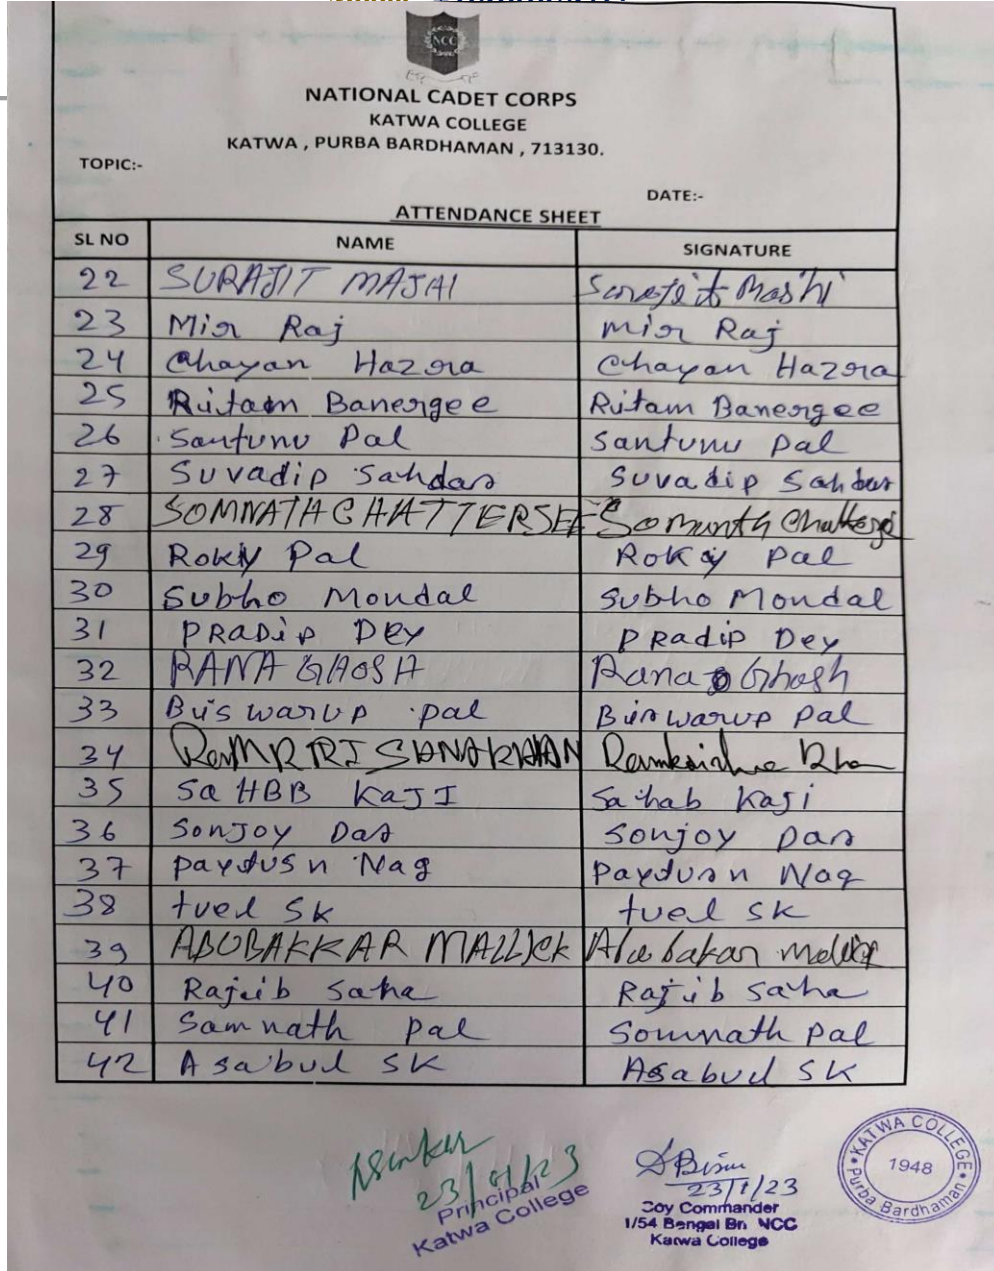 NCC
NATIONAL CADET CORPS
KATWA COLLEGE
KATWA , PURBA BARDHAMAN , 713130.
TOPIC:-
DATE:-
ATTENDANCE SHEET
SL NO NAME SIGNATURE
22 SURAJIT MAJAI Surajit Mashi
23 Mir Raj Mir Raj
24 Chayan Hazra Chayan Hazra
25 Ritam Banergee Ritam Banergee
26 Santunu Pal Santunu Pal
27 Suvadip Sahdar Suvadip Sahdar
28 SOMNATH CHATTERSEE Somnath Chatterje
29 Rokiy Pal Rokiy Pal
30 Subho Mondal Subho Mondal
31 PRADIP DEY PRadip Dey
32 RANA GHOSH Rana Ghosh
33 Biswarup pal Biswarup Pal
34 RamKRISHNA KHAN
35 SaHBB KaJI Sahab Kaji
36 Sonjoy Das Sonjoy Das
37 Paydusn Nag Paydusn Nag
38 tuel SK tuel SK
39 ABUBAKKAR MALLICK Abubakar
40 Rajib Saha Rajib Saha
41 Samnath Pal Somnath Pal
42 Asabul SK Asabul SK
23/01/23
Principal
Katwa College
23/1/23
Coy Commander
1/54 Bengal Bn NCC
Katwa College
KATWA COLLEGE
1948
Purba Bardhaman